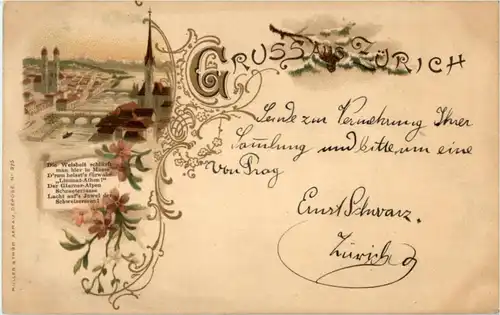 GRUSS AUS ZÜRICH
Sende zur Vermehrung Ihrer
Sammlung und bitte um eine
von Prag
Ernst Schwarz.
Zürich
Die Weisheit schlürft
man hier in Masse
D'rum heisst's fürwahr
„Limmat-Athen!"
Der Glarner-Alpen
Schneeterrasse
Lacht auf's Juwel der
Schweizerseen!
MÜLLER & TRÜB AARAU, DEPOSÉ